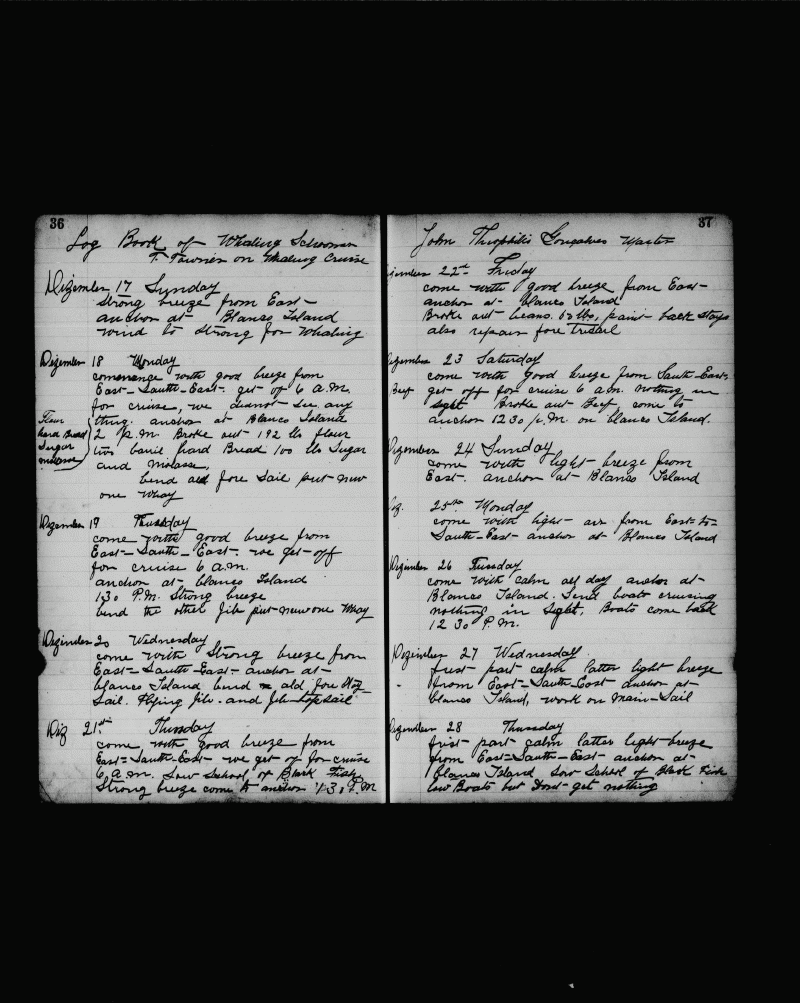 36
Log Book of Whaling Schooner
T. Towner on Whaling Cruise
Dizember 17 Sunday
Strong breeze from East-
anchor at Blanco Island
wind to strong for Whaling
Dezember 18 Monday
commange with good breeze from
East-South-East. get of 6 A.M.
for cruise, we did not see any
thing. anchor at Blanco Island
2 P.M. Broke out 192 lb flour
two baril hard Bread 100 lb Sugar
and Molasse,
bend old fore Sail put new
one Way
Flour
hard Bread
Sugar
Dizember 19 Tuesday
come with good breeze from
East-South-East. we get off
for cruise 6 a.m.
anchor at blanco Island
1 30 P.M. Strong breeze
bend the other Jib put new one Way
Dezimber 20 Wednesday
come with Strong breeze from
East-South-East- anchor at
blanco Island bend old fore Stay
Sail. Flying Jib. and Jib topsail
Diz 21st Thursday
come with good breeze from
East-South-East- we get of for cruise
6 a.m. Sow School of Black Fish
Strong breeze come to anchor 1 30 P.M
37
John Theophilis Gonsalves Master
22nd Friday
come with good breeze from East-
anchor at blanco Island
Broke out beans. 60 lbs, paint back stays
also repair fore Trisail
23 Saturday
come with good breeze from South-East-
Beef get off for cruise 6 a.m. nothing in
Sight Broke out Beef, come to
anchor 12 30 p.M. on blanco Island.
Dezember 24 Sunday
come with light breeze from
East. anchor at Blanco Island
25th Monday
come with light air from East-to-
South-East- anchor at Blanco Island
Dizember 26 Tuesday
come with calm all day anchor at
Blanco Island. Send boats cruising
nothing in Sight. Boats come back
12 30 P.M.
Dezimber 27 Wednesday
first part calm latter light breeze
from East-South-East anchor at
blanco Island, work on Main-Sail
Dezember 28 Thursday
first part calm latter light-breeze
from East-South-East- anchor at
blanco Island Sow School of Black Fish
low Boats but Dont get nothing